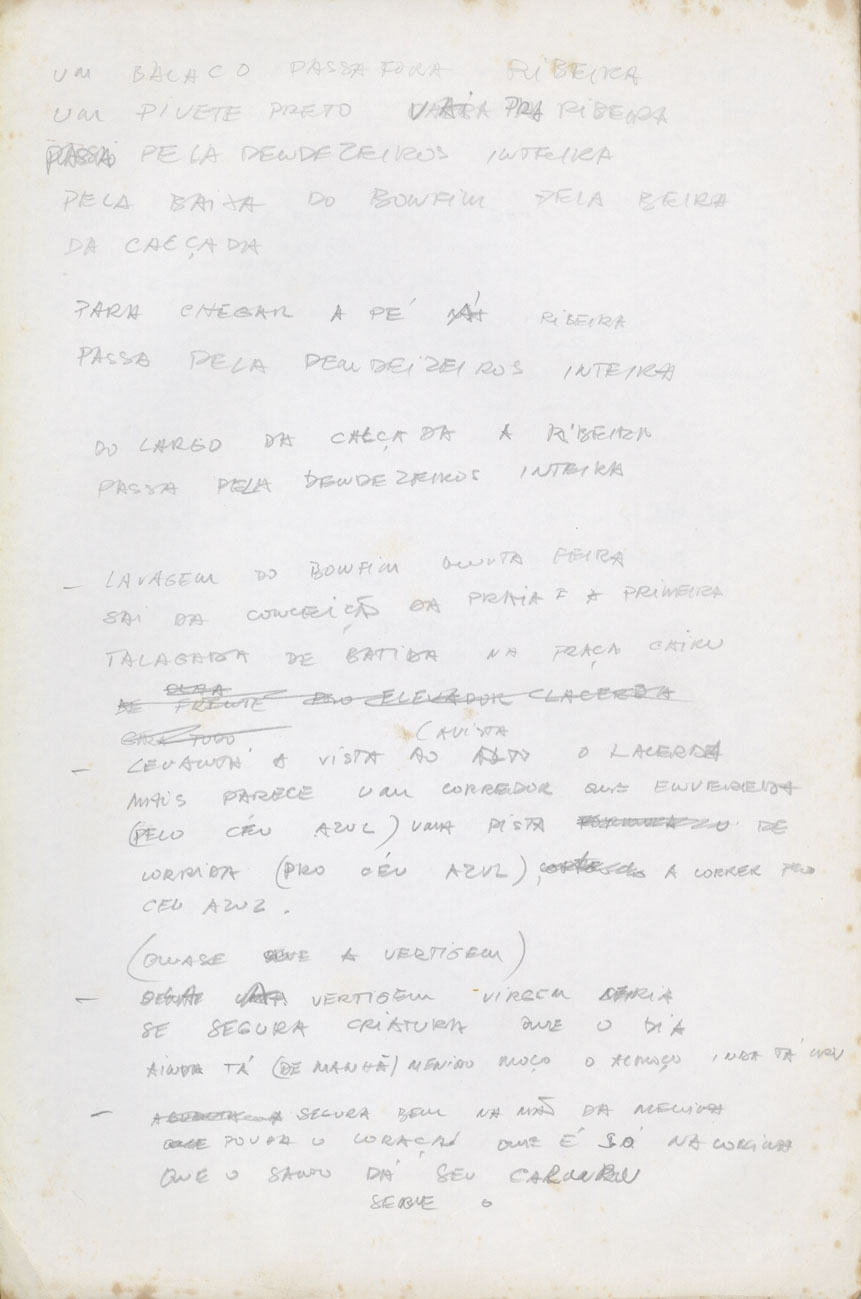 UM BALAÇO PASSA FORA RIBEIRA
UM PIVETE PRETO VAI PRA RIBEIRA
PASSA PELA DENDEZEIROS INTEIRA
PELA BAIXA DO BONFIM PELA BEIRA
DA CALÇADA
PARA CHEGAR A PÉ RIBEIRA
PASSA PELA DENDEIZEIROS INTEIRA
DO LARGO DA CALÇADA A RIBEIRA
PASSA PELA DENDEZEIROS INTEIRA
– LAVAGEM DO BONFIM QUINTA FEIRA
SAI DA CONCEIÇÃO DA PRAIA E A PRIMEIRA
TALAGADA DE BATIDA NA PRAÇA CAIRU
OLHA
DE FRENTE PRO ELEVADOR LACERDA
TUDO (AVISTA
– LEVANTA A VISTA AO ALTO O LACERDA
MAIS PARECE UM CORREDOR QUE ENVEREDA
(PELO CÉU AZUL) UMA PISTA DE
CORRIDA (PRO CÉU AZUL), A CORRER PELO
CÉU AZUL.
(QUASE QUE A VERTIGEM)
– VERTIGEM VIRGEM MARIA
SE SEGURA CRIATURA QUE O DIA
AINDA TÁ (DE MANHÃ) MENINO MOÇO O ALMOÇO INDA TÁ CRU
– SEGURA BEM NA MÃO DA MENINA
POUPA O CORAÇÃO QUE É SÓ NA COLINA
QUE O SANTO DÁ SEU CARURU
SERVE O